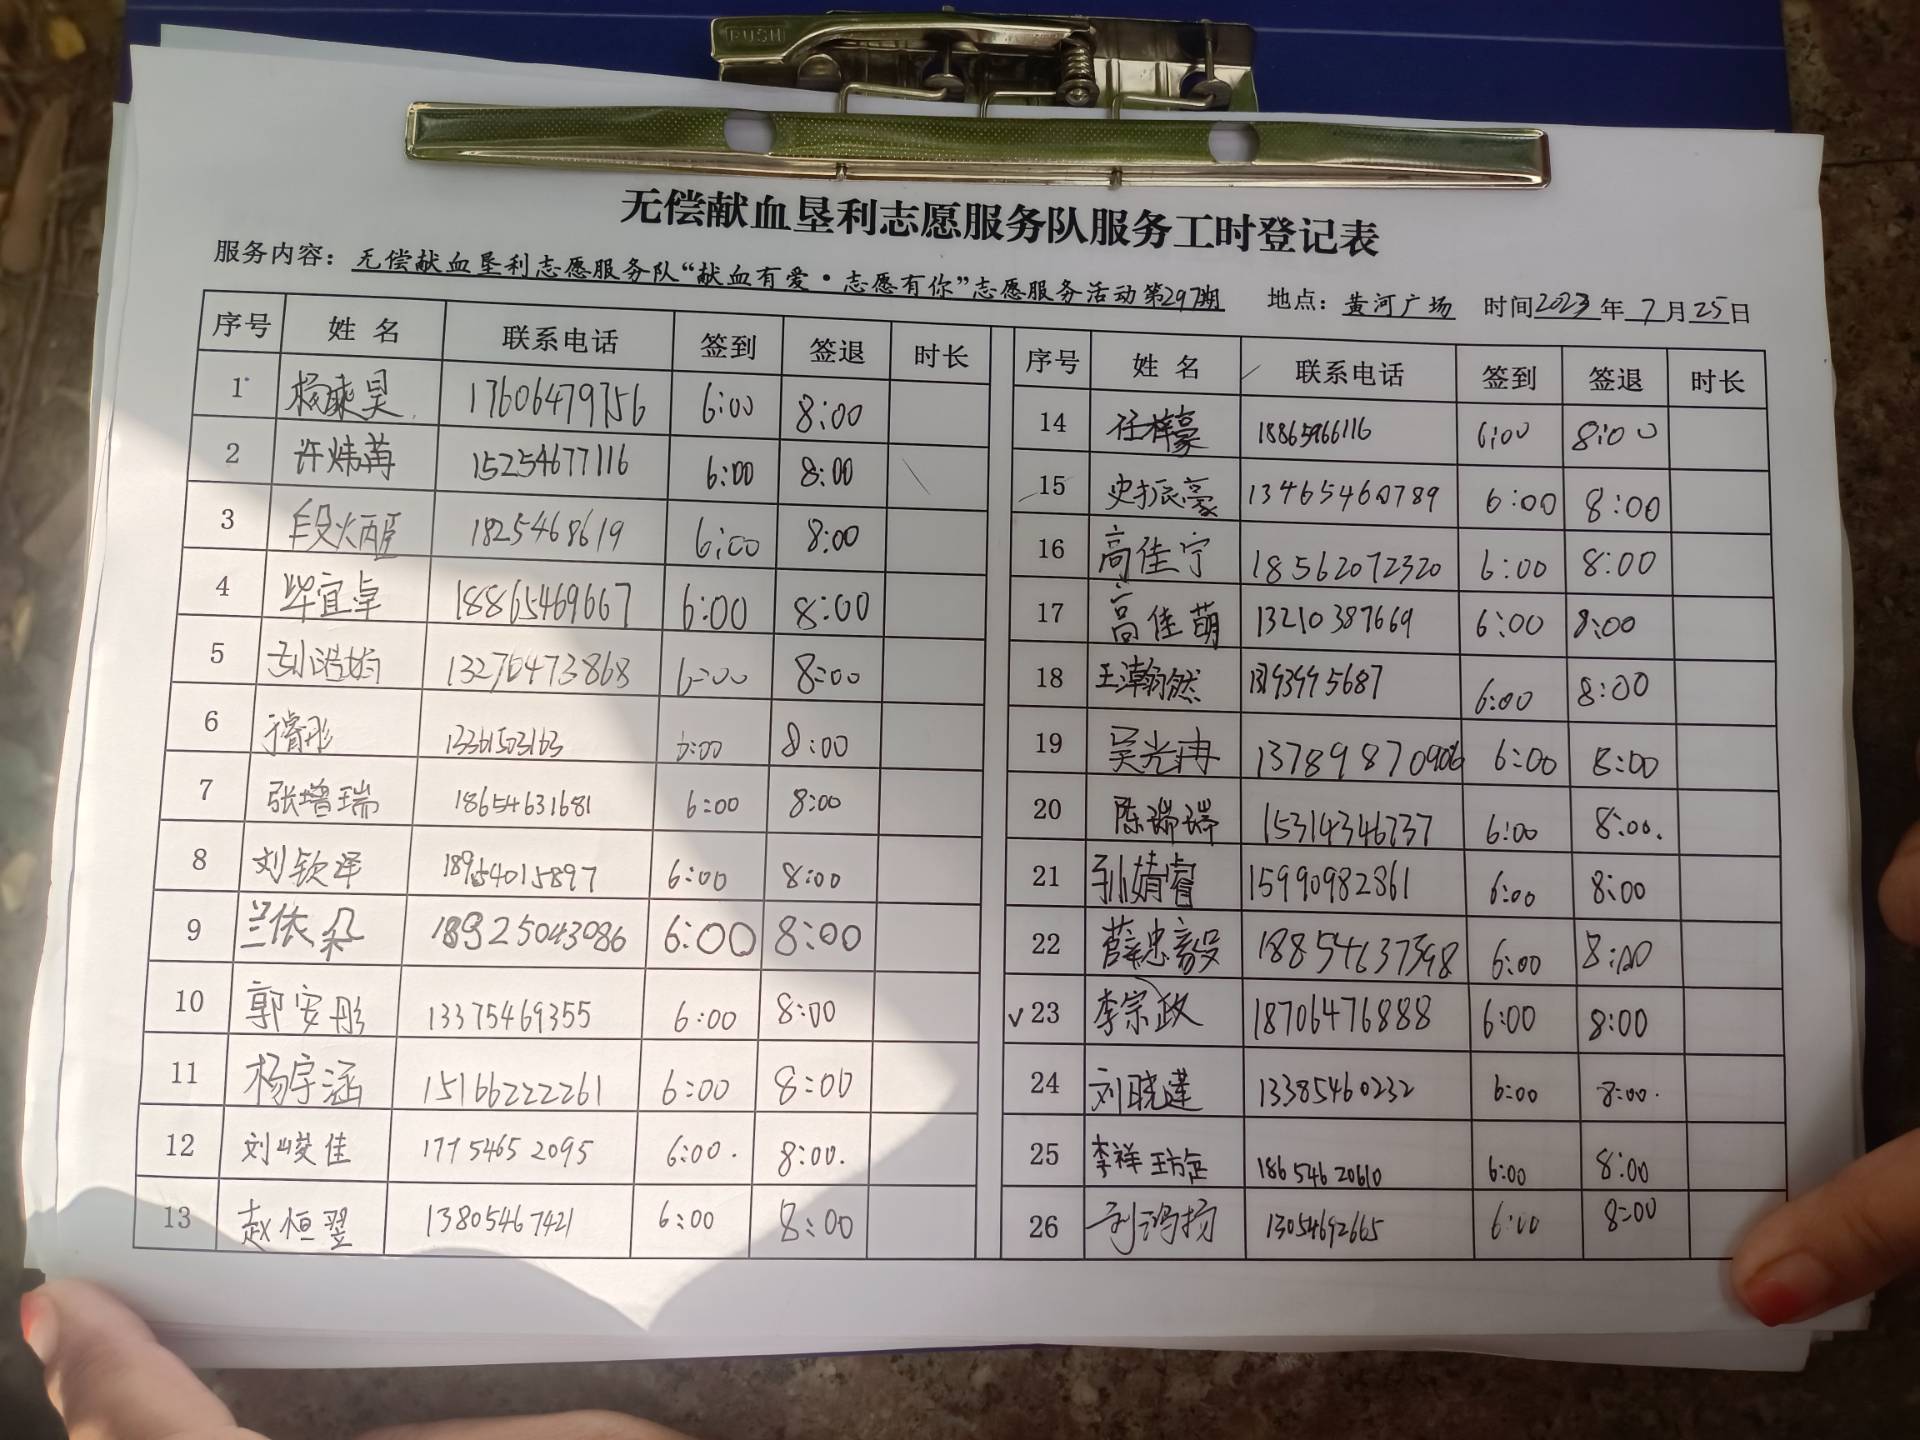 PUSH
无偿献血垦利志愿服务队服务工时登记表
服务内容：无偿献血垦利志愿服务队“献血有爱·志愿有你”志愿服务活动第297期 地点：黄河广场 时间2023年7月25日
序号 姓名 联系电话 签到 签退 时长
1 杨秉昊 17606479756 6:00 8:00
2 许炜苒 15254677116 6:00 8:00
3 段炳臣 1825468619 6:00 8:00
4 毕宜卓 18865469667 6:00 8:00
5 13276473868 6:00 8:00
6 于睿彤 13361503163 6:00 8:00
7 张增瑞 18654631681 6:00 8:00
8 刘钦泽 18954015897 6:00 8:00
9 兰依朵 18925043086 6:00 8:00
10 郭安彤 13375469355 6:00 8:00
11 杨宇涵 15166222261 6:00 8:00
12 刘峻佳 17754652095 6:00. 8:00.
13 赵恒翌 13805467421 6:00 8:00
序号 姓名 联系电话 签到 签退 时长
14 任梓豪 18865966116 6:00 8:00
15 史振豪 13465460789 6:00 8:00
16 高佳宁 18562072320 6:00 8:00
17 高佳萌 13210387669 6:00 8:00
18 王瀚然 6:00 8:00
19 吴光冉 6:00 8:00
20 陈瑞瑞 15314346737 6:00 8:00.
21 孙婧睿 15990982861 6:00 8:00
22 薛忠毅 18854637598 6:00 8:00
✓23 李宗政 18706476888 6:00 8:00
24 刘晓莲 13385460232 6:00 8:00.
25 李祥 18654620610 6:00 8:00
26 刘鸿扬 13054692665 6:00 8:00